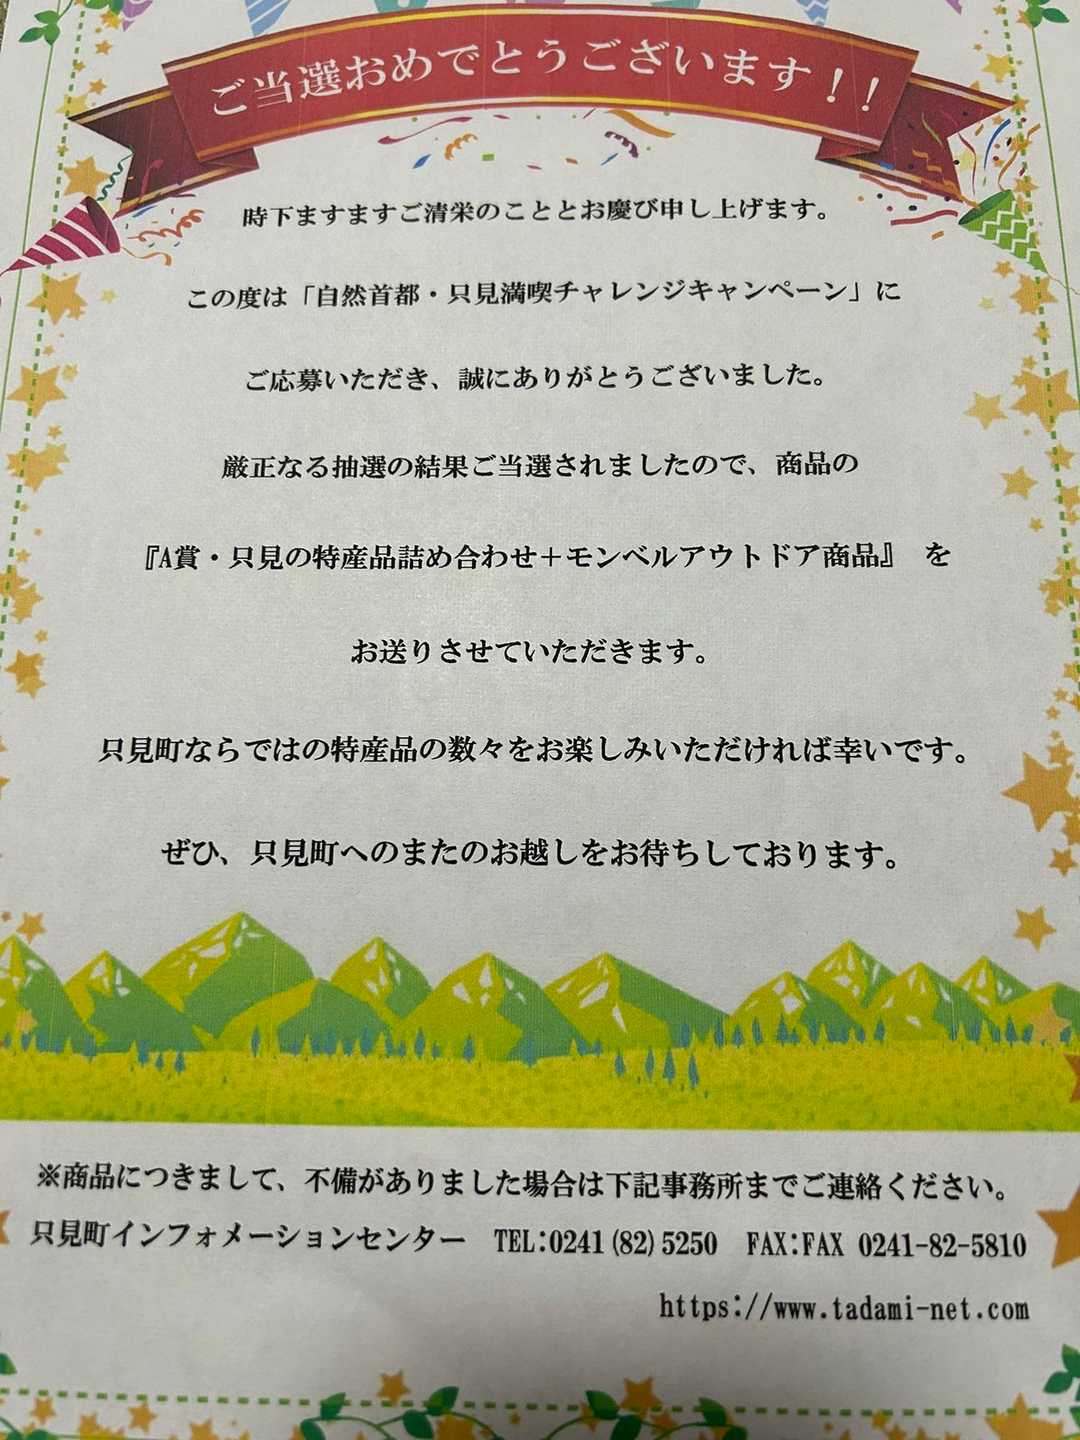 ご当選おめでとうございます！！
時下ますますご清栄のこととお慶び申し上げます。
この度は「自然首都・只見満喫チャレンジキャンペーン」に
ご応募いただき、誠にありがとうございました。
厳正なる抽選の結果ご当選されましたので、商品の
『A賞・只見の特産品詰め合わせ＋モンベルアウトドア商品』 を
お送りさせていただきます。
只見町ならではの特産品の数々をお楽しみいただければ幸いです。
ぜひ、只見町へのまたのお越しをお待ちしております。
※商品につきまして、不備がありました場合は下記事務所までご連絡ください。
只見町インフォメーションセンター TEL:0241(82)5250 FAX:FAX 0241-82-5810
https://www.tadami-net.com